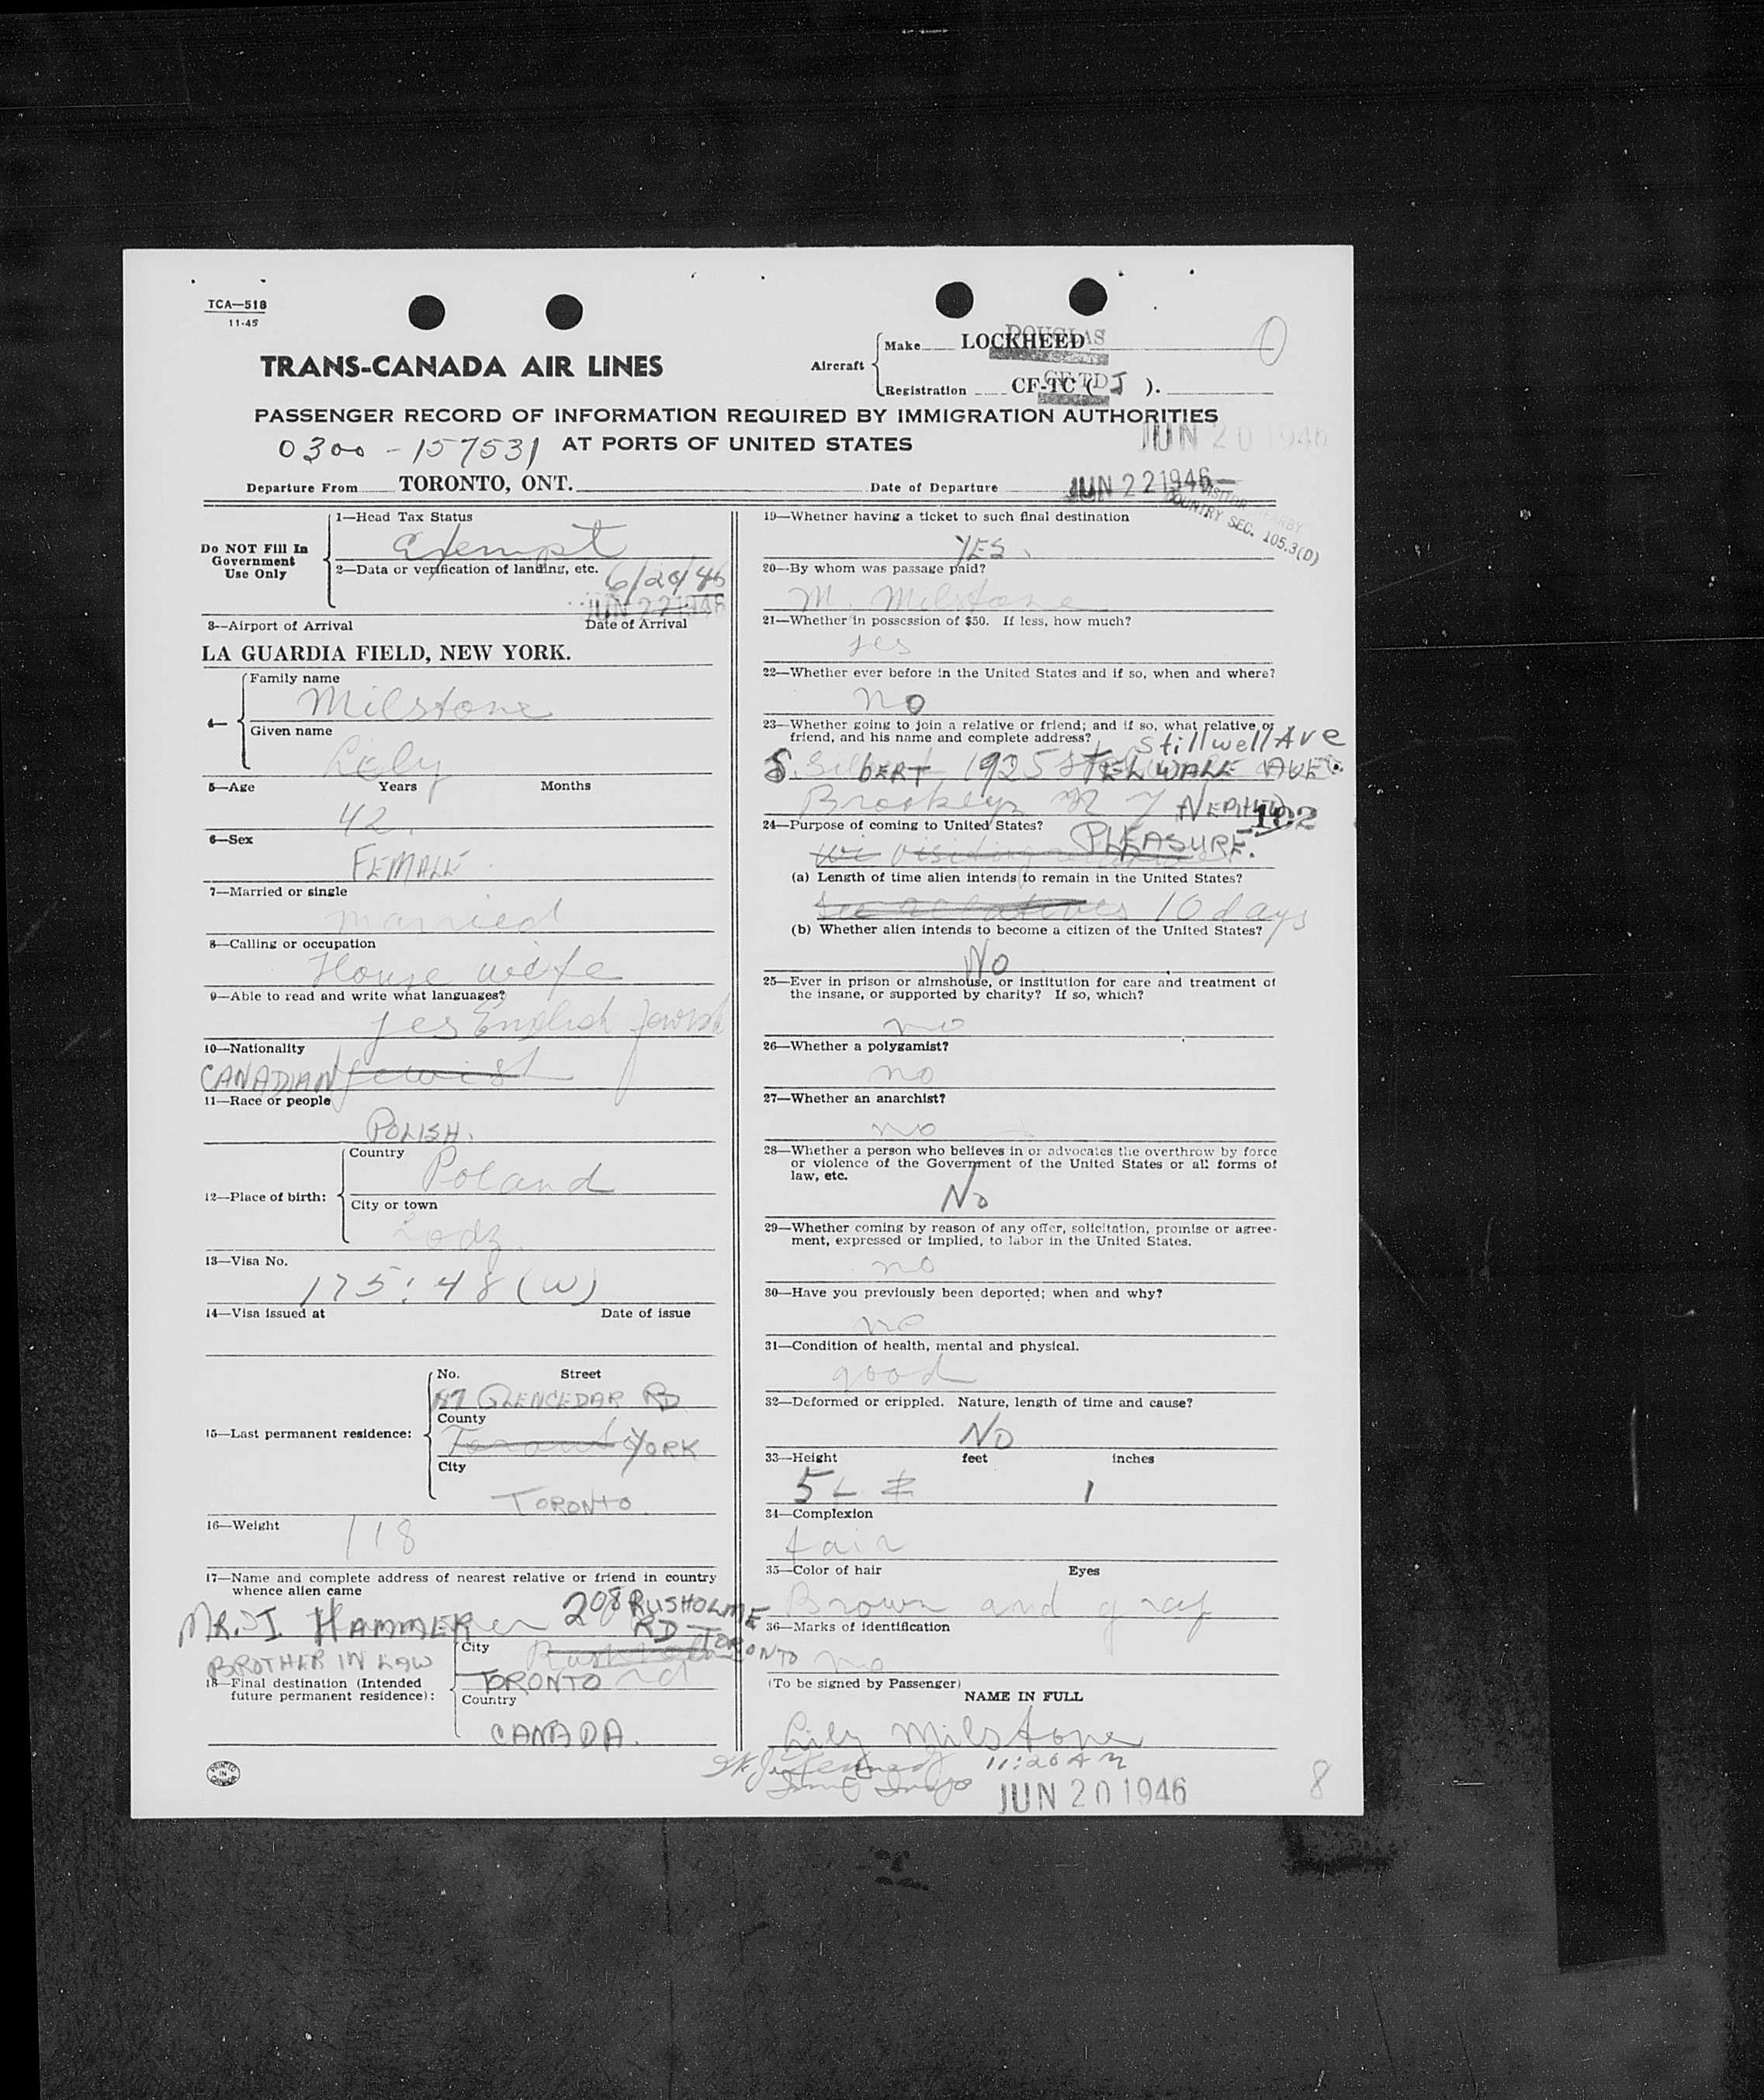 TCA—518
11-45
TRANS-CANADA AIR LINES
Aircraft
Make LOCKHEED DOUGLAS
Registration CF-TC ( J ). CF-TD
PASSENGER RECORD OF INFORMATION REQUIRED BY IMMIGRATION AUTHORITIES
0300-157531 AT PORTS OF UNITED STATES
JUN 20 1946
Departure From TORONTO, ONT. Date of Departure JUN 22 1946
COUNTRY SEC. 105.3(D)
Do NOT Fill In Government Use Only
1—Head Tax Status
Exempt
2—Data or verification of landing, etc. 6/20/46
JUN 22 1946
3—Airport of Arrival Date of Arrival
LA GUARDIA FIELD, NEW YORK.
4—
Family name
Milstone
Given name
Lily
5—Age Years Months
42
6—Sex
FEMALE
7—Married or single
married
8—Calling or occupation
House wife
9—Able to read and write what languages?
yes English Jewish
10—Nationality
CANADIAN Jewish
11—Race or people
POLISH.
12—Place of birth:
Country
Poland
City or town
Lodz
13—Visa No.
175:48 (W)
14—Visa issued at Date of issue
15—Last permanent residence:
No. Street
GLENCEDAR RD
County
Toronto YORK
City
TORONTO.
16—Weight
118
17—Name and complete address of nearest relative or friend in country
whence alien came
MR. J. HAMMER 208 RUSHOLME
RD — TORONTO
BROTHER IN LAW
18—Final destination (Intended
future permanent residence):
City
TORONTO
Country
CANADA.
PRINTED IN CANADA
19—Whether having a ticket to such final destination
YES.
20—By whom was passage paid?
M. Milstone
21—Whether in possession of $50. If less, how much?
yes
22—Whether ever before in the United States and if so, when and where?
no
23—Whether going to join a relative or friend; and if so, what relative or
friend, and his name and complete address?
Stillwell Ave
S. Gilbert 1925 STELWALL AVE.
Brooklyn N Y NEPHEW
102
24—Purpose of coming to United States?
PLEASURE.
visiting
(a) Length of time alien intends to remain in the United States?
see relatives 10 days
(b) Whether alien intends to become a citizen of the United States?
No
25—Ever in prison or almshouse, or institution for care and treatment of
the insane, or supported by charity? If so, which?
no
26—Whether a polygamist?
no
27—Whether an anarchist?
no
28—Whether a person who believes in or advocates the overthrow by force
or violence of the Government of the United States or all forms of
law, etc.
No
29—Whether coming by reason of any offer, solicitation, promise or agree-
ment, expressed or implied, to labor in the United States.
no
30—Have you previously been deported; when and why?
no
31—Condition of health, mental and physical.
good
32—Deformed or crippled. Nature, length of time and cause?
NO
33—Height feet inches
5 1
34—Complexion
fair
35—Color of hair Eyes
Brown and gray
36—Marks of identification
no
(To be signed by Passenger)
NAME IN FULL
Lily Milstone
11:20 AM
JUN 20 1946
8